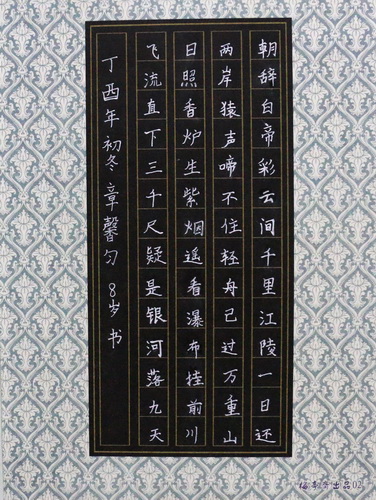 朝辞白帝彩云间千里江陵一日还
两岸猿声啼不住轻舟已过万重山
日照香炉生紫烟遥看瀑布挂前川
飞流直下三千尺疑是银河落九天
丁酉年初冬章馨匀 8岁书
出品02